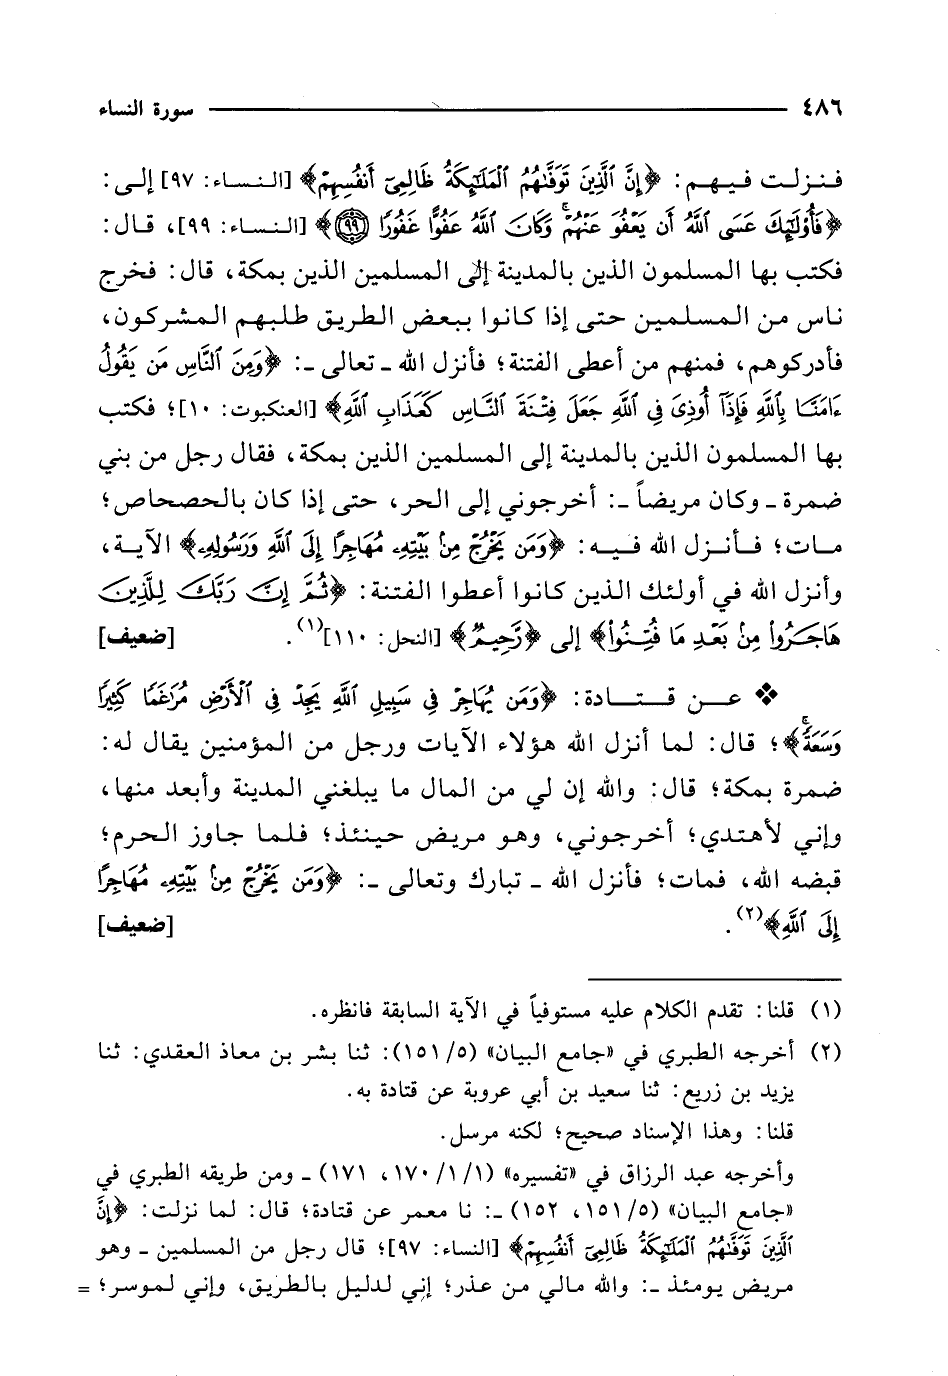 ٤٨٦ سورة النساء
فنزلت فيهم: ﴿إِنَّ ٱلَّذِينَ تَوَفَّىٰهُمُ ٱلْمَلَٰٓئِكَةُ ظَالِمِىٓ أَنفُسِهِمْ﴾ [النساء: ٩٧] إلى:
﴿فَأُو۟لَٰٓئِكَ عَسَى ٱللَّهُ أَن يَعْفُوَ عَنْهُمْ ۚ وَكَانَ ٱللَّهُ عَفُوًّا غَفُورًا ٩٩﴾ [النساء: ٩٩]، قال:
فكتب بها المسلمون الذين بالمدينة إلى المسلمين الذين بمكة، قال: فخرج
ناس من المسلمين حتى إذا كانوا ببعض الطريق طلبهم المشركون،
فأدركوهم، فمنهم من أعطى الفتنة؛ فأنزل الله ـ تعالى ـ: ﴿وَمِنَ ٱلنَّاسِ مَن يَقُولُ
ءَامَنَّا بِٱللَّهِ فَإِذَآ أُوذِىَ فِى ٱللَّهِ جَعَلَ فِتْنَةَ ٱلنَّاسِ كَعَذَابِ ٱللَّهِ﴾ [العنكبوت: ١٠]؛ فكتب
بها المسلمون الذين بالمدينة إلى المسلمين الذين بمكة، فقال رجل من بني
ضمرة ـ وكان مريضاً ـ: أخرجوني إلى الحر، حتى إذا كان بالحصحاص؛
مات؛ فأنزل الله فيه: ﴿وَمَن يَخْرُجْ مِنۢ بَيْتِهِۦ مُهَاجِرًا إِلَى ٱللَّهِ وَرَسُولِهِۦ﴾ الآية،
وأنزل الله في أولئك الذين كانوا أعطوا الفتنة: ﴿ثُمَّ إِنَّ رَبَّكَ لِلَّذِينَ
هَاجَرُوا۟ مِنۢ بَعْدِ مَا فُتِنُوا۟﴾ إلى ﴿رَّحِيمٌ﴾ [النحل: ١١٠](١). [ضعيف]
❖ عن قتادة: ﴿وَمَن يُهَاجِرْ فِى سَبِيلِ ٱللَّهِ يَجِدْ فِى ٱلْأَرْضِ مُرَٰغَمًا كَثِيرًا
وَسَعَةً ۚ﴾؛ قال: لما أنزل الله هؤلاء الآيات ورجل من المؤمنين يقال له:
ضمرة بمكة؛ قال: والله إن لي من المال ما يبلغني المدينة وأبعد منها،
وإني لأهتدي؛ أخرجوني، وهو مريض حينئذ؛ فلما جاوز الحرم؛
قبضه الله، فمات؛ فأنزل الله ـ تبارك وتعالى ـ: ﴿وَمَن يَخْرُجْ مِنۢ بَيْتِهِۦ مُهَاجِرًا
إِلَى ٱللَّهِ﴾(٢). [ضعيف]
(١) قلنا: تقدم الكلام عليه مستوفياً في الآية السابقة فانظره.
(٢) أخرجه الطبري في «جامع البيان» (٥/ ١٥١): ثنا بشر بن معاذ العقدي: ثنا
يزيد بن زريع: ثنا سعيد بن أبي عروبة عن قتادة به.
قلنا: وهذا الإسناد صحيح؛ لكنه مرسل.
وأخرجه عبد الرزاق في «تفسيره» (١/ ١/ ١٧٠، ١٧١) ـ ومن طريقه الطبري في
«جامع البيان» (٥/ ١٥١، ١٥٢) ـ: نا معمر عن قتادة؛ قال: لما نزلت: ﴿إِنَّ
ٱلَّذِينَ تَوَفَّىٰهُمُ ٱلْمَلَٰٓئِكَةُ ظَالِمِىٓ أَنفُسِهِمْ﴾ [النساء: ٩٧]؛ قال رجل من المسلمين ـ وهو
مريض يومئذ ـ: والله مالي من عذر؛ إني لدليل بالطريق، وإني لموسر؛ =